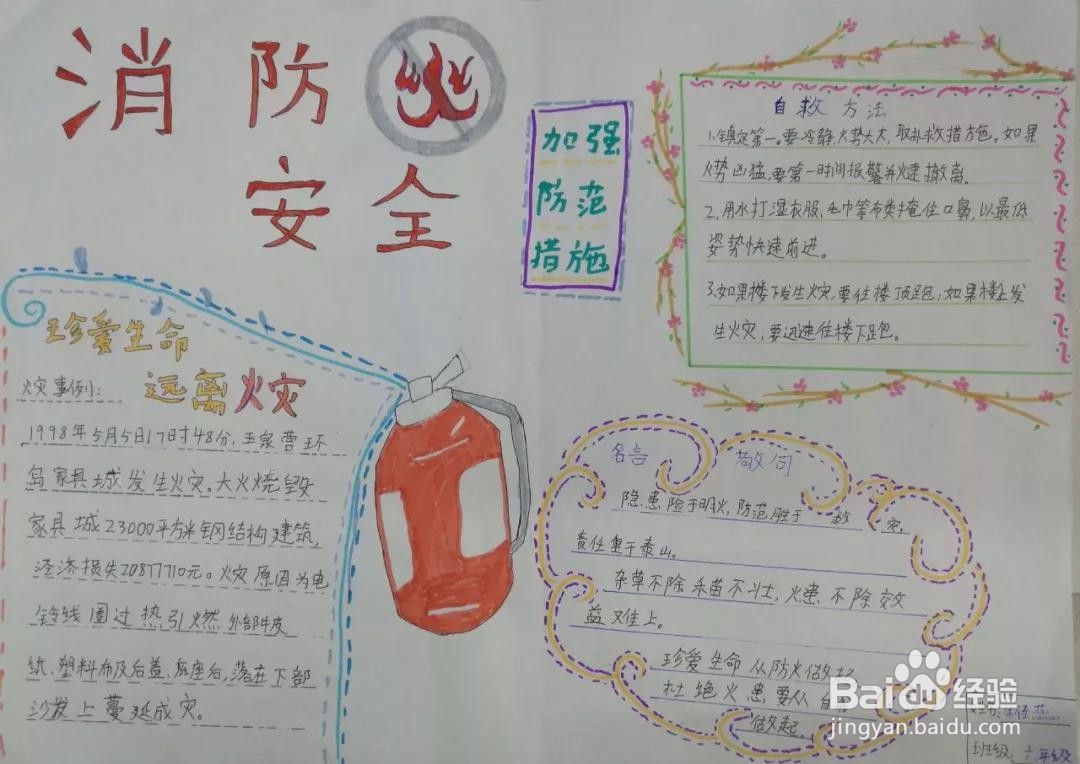 消防
安全
加强
防范
措施
自救方法
1.镇定第一。要冷静,火势大大,取扑救措施。如果
火势凶猛,要第一时间报警并火速撤离。
2.用水打湿衣服、毛巾等布类掩住口鼻,以最低
姿势快速前进。
3.如果楼下发生火灾,要往楼顶跑;如果楼上发
生火灾,要迅速往楼下跑。
珍爱生命
远离火灾
火灾事例:
1998年5月5日17时48分,玉泉营环
岛家具城发生火灾。大火烧毁
家具城23000平方米钢结构建筑,
经济损失20877710元。火灾原因为电
铃线圈过热引燃外部牛皮
纸、塑料布及后盖、底座后,落在下部
沙发上蔓延成灾。
名言 敬句
隐患险于明火,防范胜于救灾,
责任重于泰山。
杂草不除禾苗不壮,火患不除效
益难上。
珍爱生命从防火做起
杜绝火患要从
做起。
Baidu经验
jingyan.baidu.com
姓名:
班级:六年级